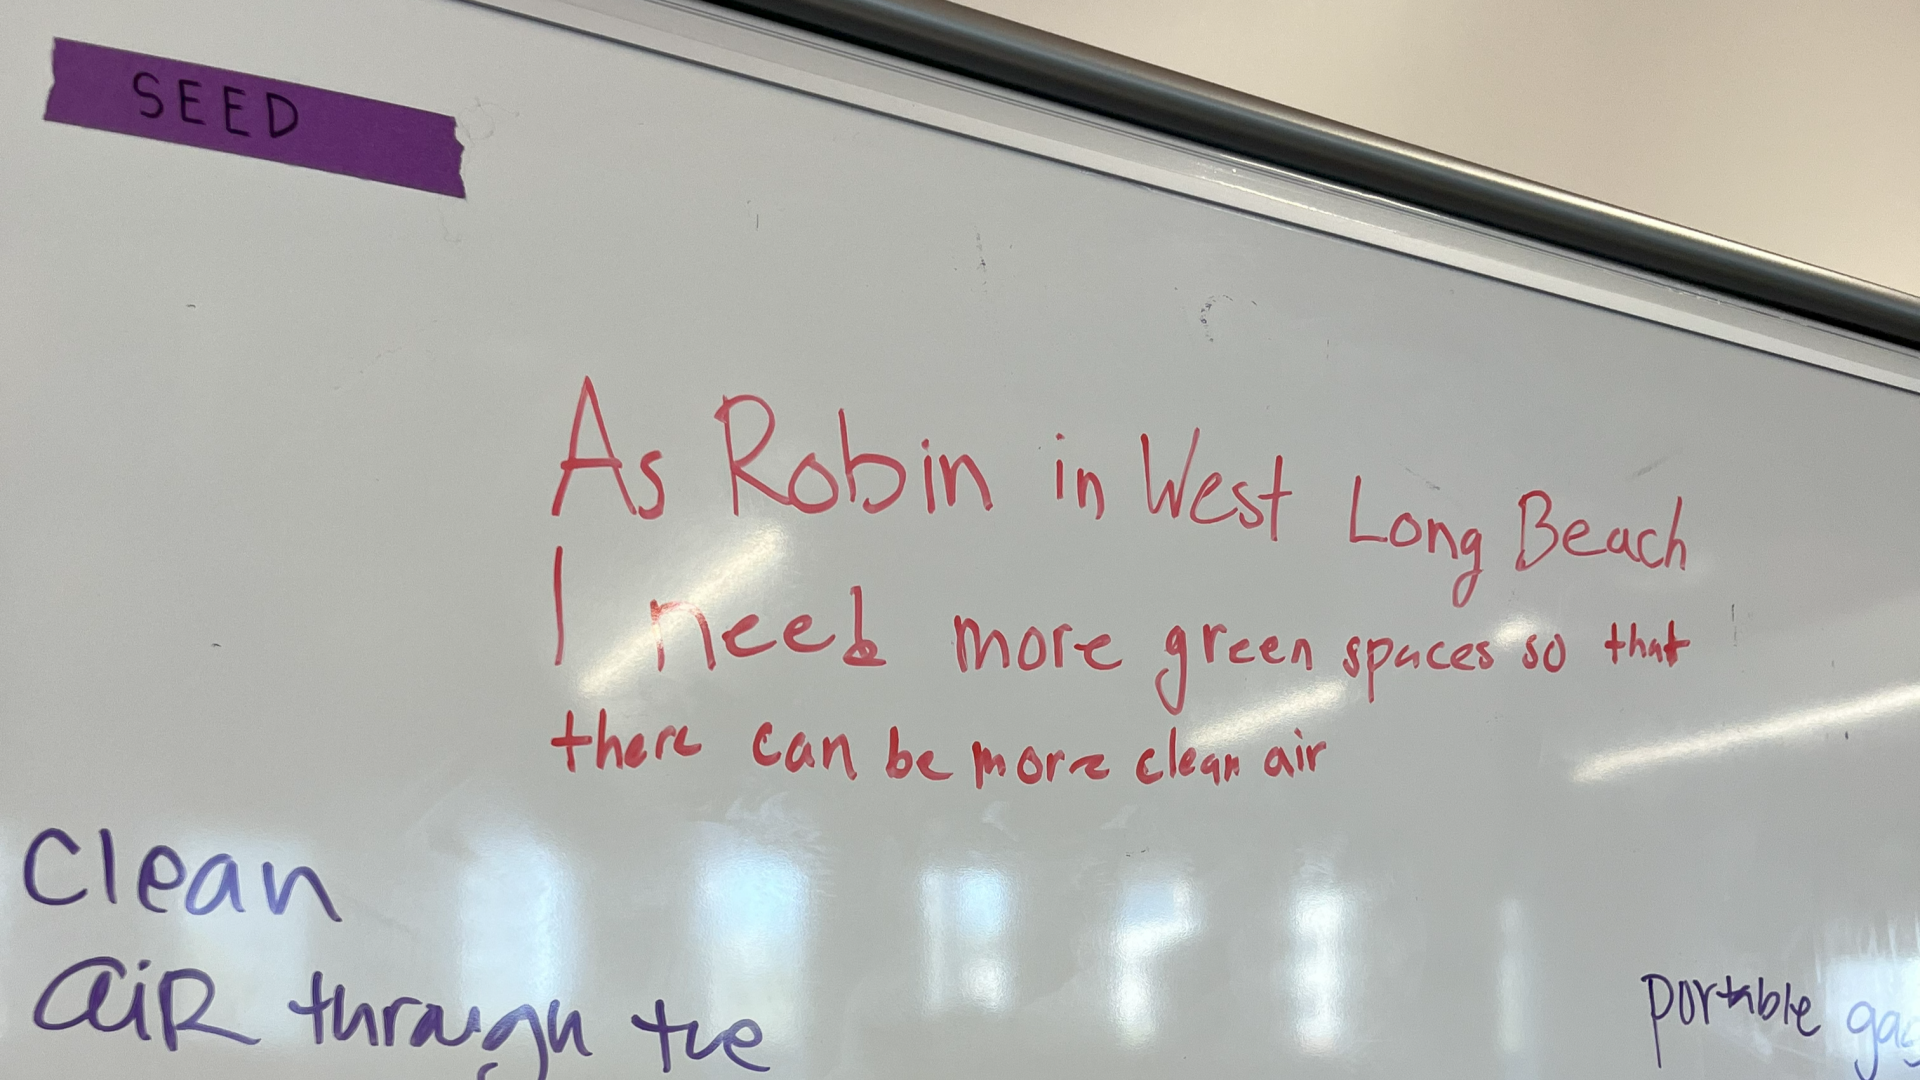 SEED
As Robin in West Long Beach
I need more green spaces so that
there can be more clean air
Clean
aiR through the
portable